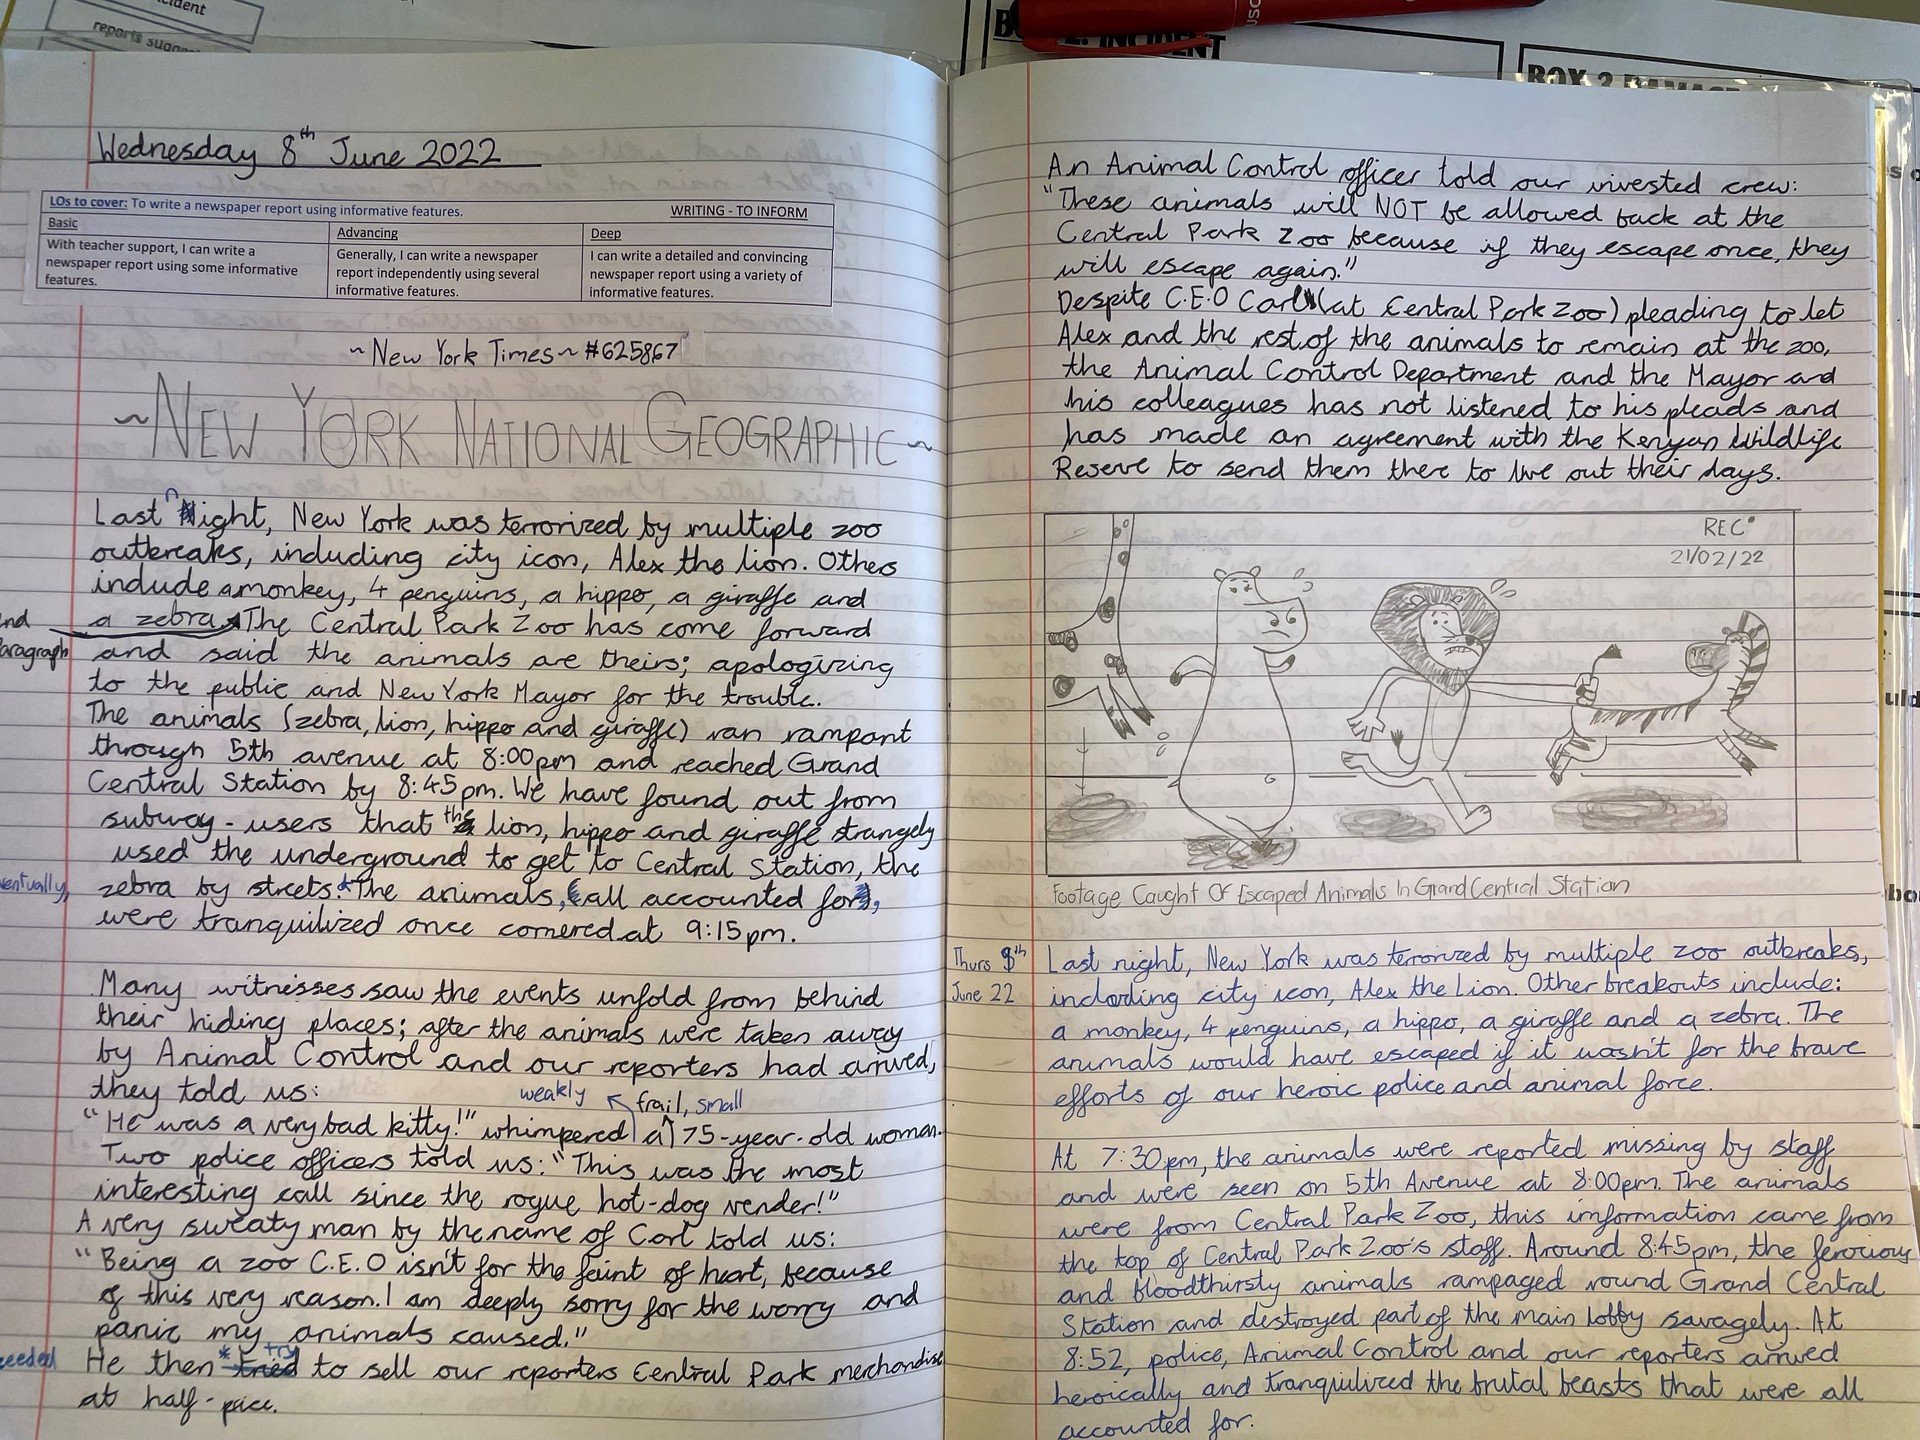 ident
reports sugges
BOX 2: INCIDENT
BOX 3 DAMAG
Wednesday 8th June 2022
LOs to cover: To write a newspaper report using informative features.
WRITING - TO INFORM
Basic
With teacher support, I can write a
newspaper report using some informative
features.
Advancing
Generally, I can write a newspaper
report independently using several
informative features.
Deep
I can write a detailed and convincing
newspaper report using a variety of
informative features.
~ New York Times ~ #625867
~ NEW YORK NATIONAL GEOGRAPHIC ~
Last night, New York was terrorized by multiple zoo
outbreaks, including city icon, Alex the lion. Others
include a monkey, 4 penguins, a hippo, a giraffe and
a zebra. The Central Park Zoo has come forward
end
paragraph
and said the animals are theirs; apologizing
to the public and New York Mayor for the trouble.
The animals (zebra, lion, hippo and giraffe) ran rampant
through 5th avenue at 8:00pm and reached Grand
Central Station by 8:45pm. We have found out from
subway-users that the lion, hippo and giraffe strangely
used the underground to get to Central Station, the
zebra by streets.* The animals, all accounted for,
ventually,
were tranquilized once cornered at 9:15pm.
Many witnesses saw the events unfold from behind
their hiding places; after the animals were taken away
by Animal Control and our reporters had arrived,
they told us:
weakly frail, small
"He was a very bad kitty!" whimpered a 75-year-old woman.
Two police officers told us: "This was the most
interesting call since the rogue hot-dog vender!"
A very sweaty man by the name of Carl told us:
"Being a zoo C.E.O isn't for the faint of heart, because
of this very reason. I am deeply sorry for the worry and
panic my animals caused."
ceeded
He then * tried try to sell our reporters Central Park merchandise
at half-price.
An Animal Control officer told our invested crew:
"These animals will NOT be allowed back at the
Central Park Zoo because if they escape once, they
will escape again."
Despite C.E.O Carl (at Central Park Zoo) pleading to let
Alex and the rest of the animals to remain at the zoo,
the Animal Control Department and the Mayor and
his colleagues has not listened to his pleads and
has made an agreement with the Kenyan Wildlife
Reserve to send them there to live out their days.
REC
21/02/22
Footage Caught Of Escaped Animals In Grand Central Station
Thurs 9th
June 22
Last night, New York was terrorized by multiple zoo outbreaks,
including city icon, Alex the Lion. Other breakouts include:
a monkey, 4 penguins, a hippo, a giraffe and a zebra. The
animals would have escaped if it wasn't for the brave
efforts of our heroic police and animal force.
At 7:30pm, the animals were reported missing by staff
and were seen on 5th Avenue at 8:00pm. The animals
were from Central Park Zoo, this information came from
the top of Central Park Zoo's staff. Around 8:45pm, the ferocious
and bloodthirsty animals rampaged round Grand Central
Station and destroyed part of the main lobby savagely. At
8:52, police, Animal Control and our reporters arrived
heroically and tranquilized the brutal beasts that were all
accounted for.